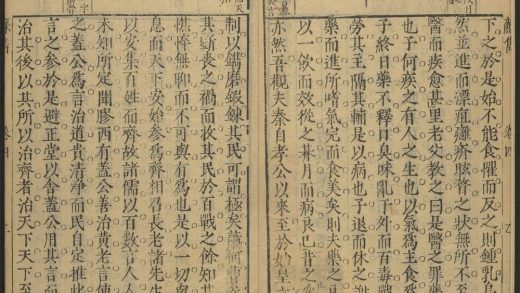 蘇集
卷四
下之於是始不能食懼而反之則鍾乳烏
然並進而漂疽癰疥眩瞀之狀無所不至
醫而疾愈甚里老父教之曰是醫之罪藥
也子何疾之有人之生也以氣爲主食爲
子終日藥不釋口臭味亂于外而百毒戰
勞其主隔其輔是以病也子退而休之謝
藥而進所嗜氣完而食美矣則夫藥之良
以一飲而效從之朞月而病良已昔之
亦然吾觀夫秦自孝公以來至於始皇
制以鐫磨鍛鍊其民可謂極矣蕭何曹參
其斲喪之禍而收其民於百戰之餘知其
憔悴無聊而不可與有爲也是以一切與
息而天下安始參爲齊相召長老諸先生
以安集百姓而齊故諸儒以百數言人人
未知所定聞膠西有蓋公善治黃老言使
之蓋公爲言治道貴清淨而民自定推此
言之參於是避正堂以舍蓋公用其言而
治其後以其所以治齊者治天下天下至